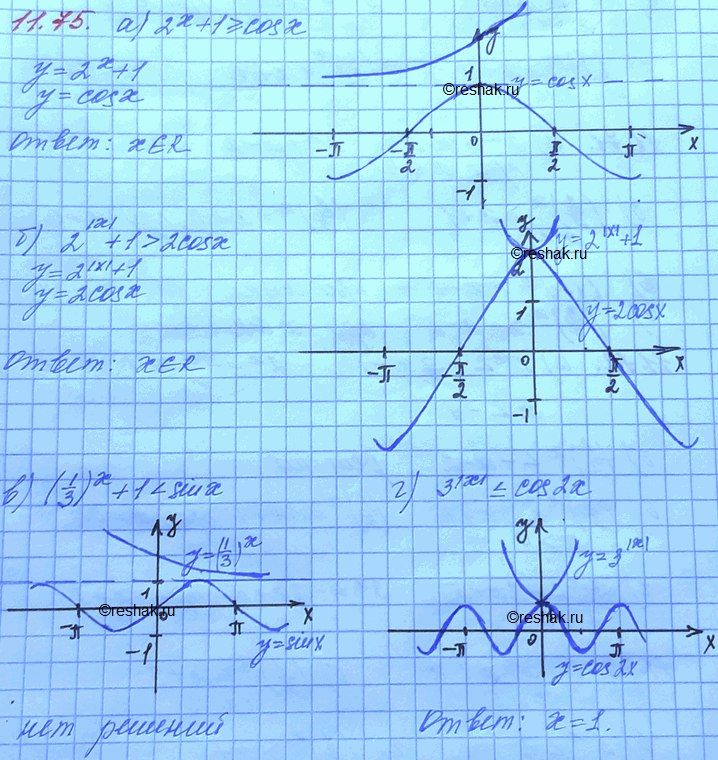 11.75. а) 2^x+1≥cosx
y=2^x+1
y=cosx
Ответ: x∈R
y
1
y=cosx
©reshak.ru
-π
-π/2
0
π/2
π
x
-1
б) 2^|x|+1>2cosx
y=2^|x|+1
y=2cosx
Ответ: x∈R
y
y=2^|x|+1
©reshak.ru
2
1
y=2cosx
-π
-π/2
0
π/2
x
-1
в) (1/3)^x+1<sinx
y
y=(1/3)^x
1
©reshak.ru
-π
0
π
x
-1
y=sinx
нет решений
г) 3^|x|≤cos2x
y
y=3^|x|
©reshak.ru
-π
0
π
x
y=cos2x
Ответ: x=1.